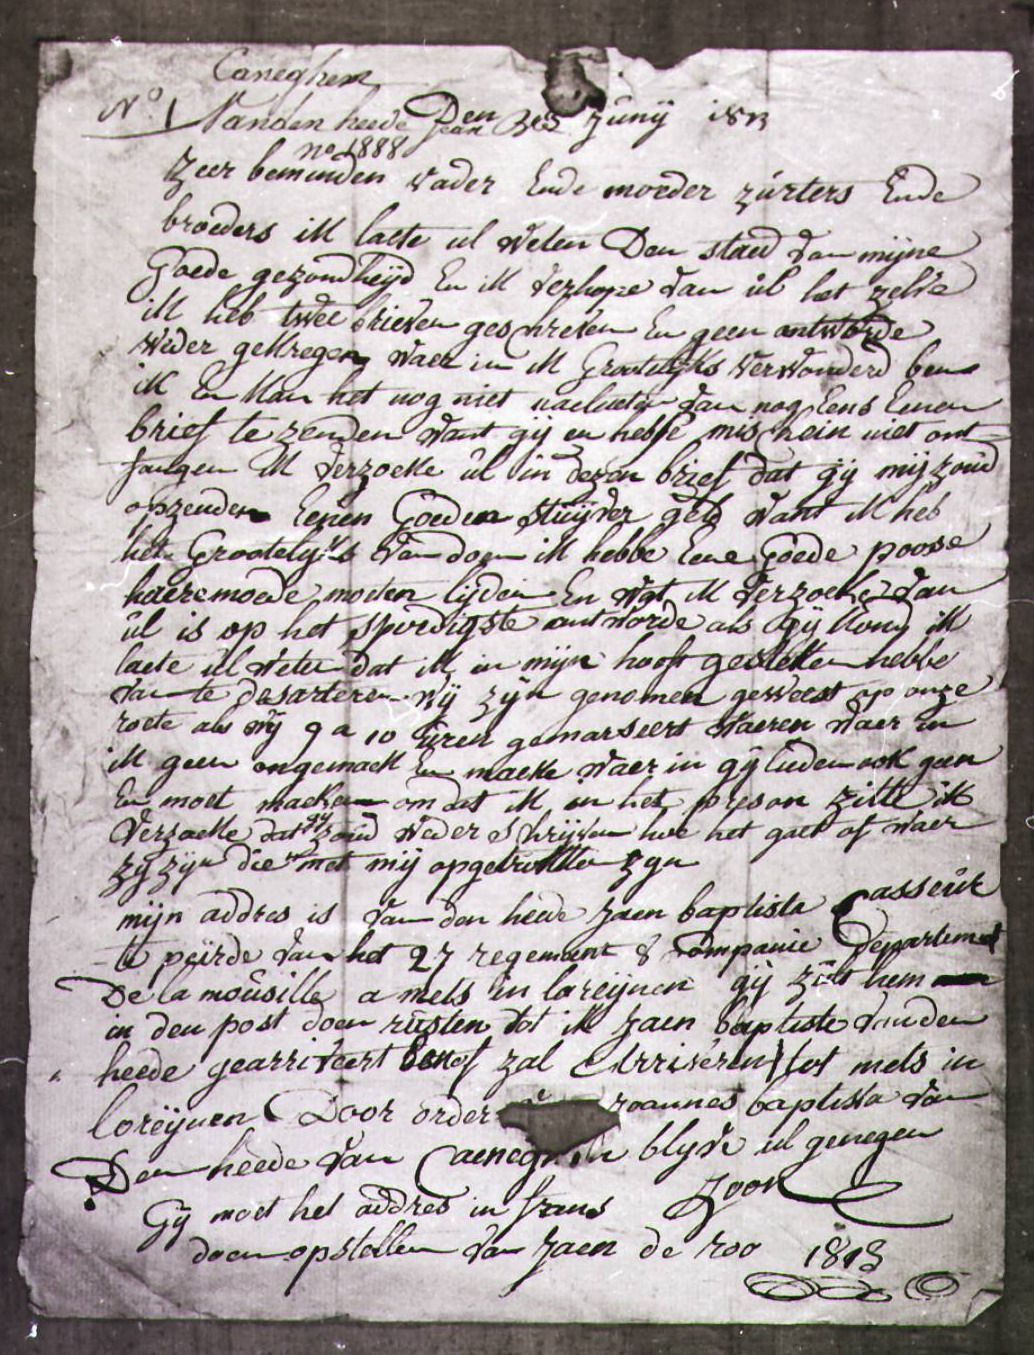 Caneghem
N.o 1 Vanden heede Jean Den 3es Junÿ 1813
no 1888
Zeer beminden vader Ende moeder zusters Ende
broeders ik laete ul weten Den staed van mijne
Goede gezondheÿd En ik verhope van ul het zelve
ik heb twee brieven geschreven En geen antworde
weder gekregen waer in ik Grootelÿks verwonderd ben
ik En kan het nog niet naelaeten van nog Eens Eenen
brief te zenden want gij en hebse mischein niet ont=
fangen ik verzoeke ul in dezen brief dat gÿ mij zoud
opzenden Eenen Goeden stuijver geld want ik heb
het Grootelÿks van doen ik hebbe Eene Goede poose
haeremoede moeten lijden En wat ik verzoeke van
ul is op het spoedigste antworde als Gÿ kond ik
laete ul weten dat ik in mijn hooft gesteken hebbe
van te desarteren wÿ zÿn genomen geweest op onze
roete als wÿ 9 a 10 uren gemarseert waeren waer in
ik geen ongemack En maeke waer in gÿ lieden ook geen
En moet maeken omdat ik in het preson zitte ik
verzoeke dat gÿ zoud weder schrijven hoe het gaet of waer
zÿ zÿn die met mij opgetrokken zyn
mijn addres is van den heede Jaen baptista Casseur
te peirde van het 27 regement 8 Companie Departement
De la mousille a mets in loreijnen gij zult hem
in den post doen rusten tot ik Jaen baptiste vanden
heede gearriveert ben of zal Arriveren tot mets in
loreÿnen Door order Joannes baptista van
Den heede van Caenegem blyve ul genegen
Zoon
Gÿ moet het addres in frans
doen opstellen van Jaen de roo 1813